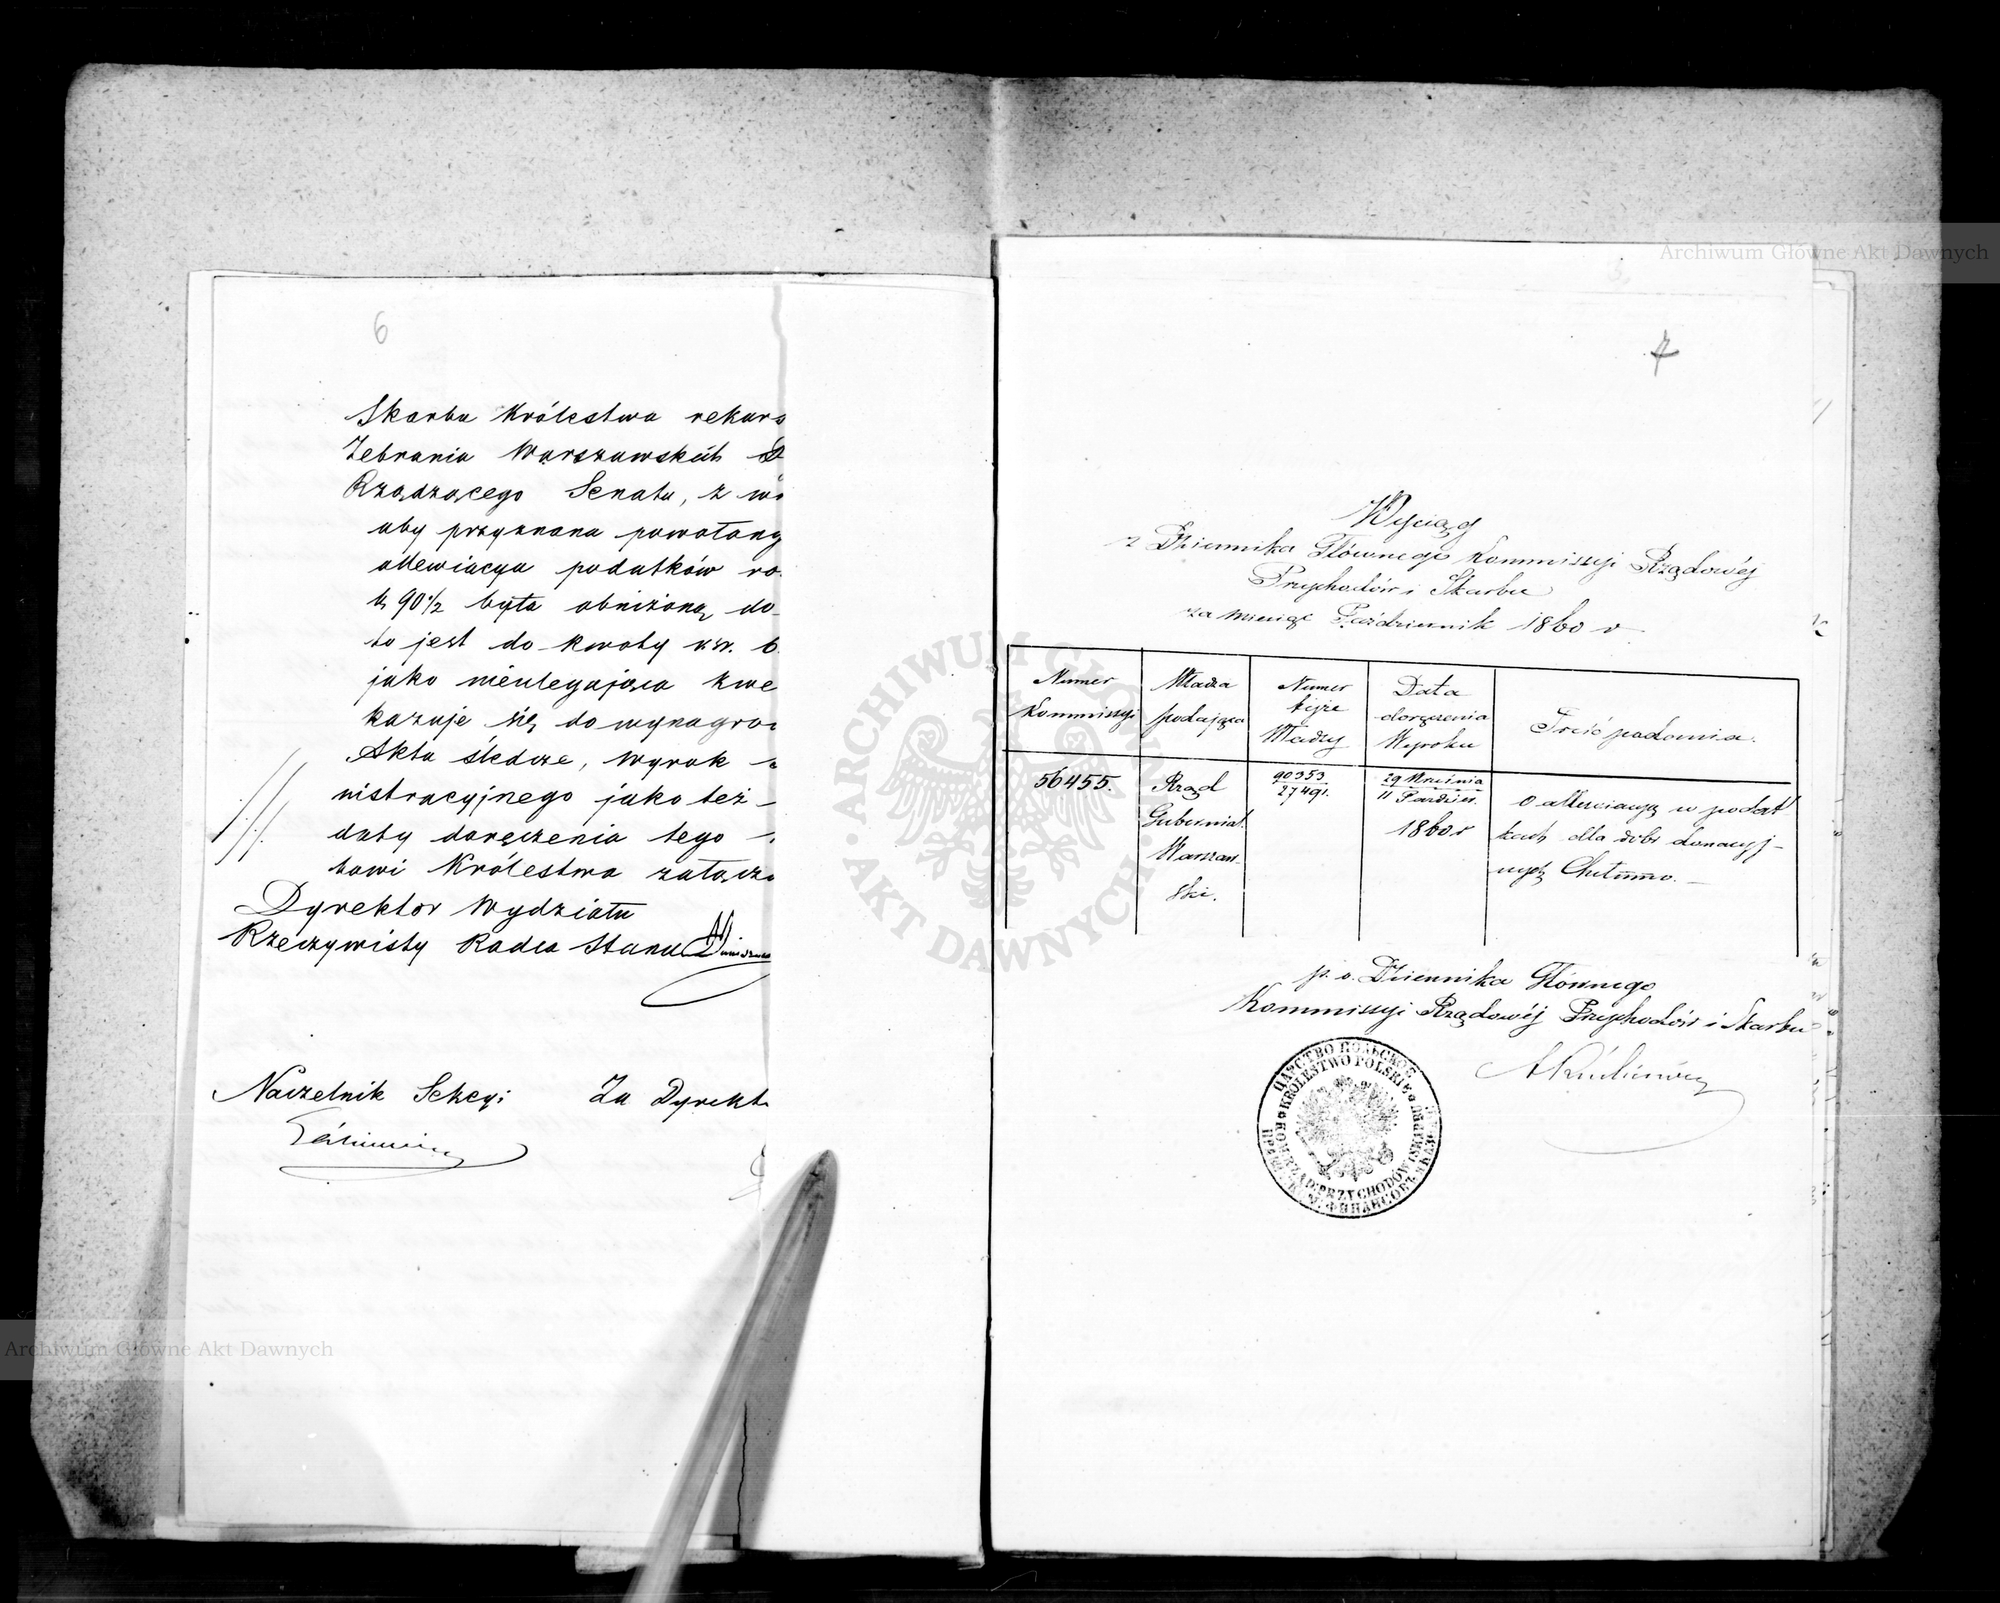 6
Skarbu Królestwa rekurs
Zebrania Warszawskich D
Rządzącego Senatu, z w
aby przyznana powołany
allewiacya podatków ro.
była obniżoną do
to jest do kwoty rsr. 6
jako nieulegająca kwe
kazuje się do wynagro
Akta śledcze, wyrok
nistracyjnego jako też
daty doręczenia tego
bowi Królestwa załącza
Dyrektor Wydziału
Rzeczywisty Radca Stanu
Naczelnik Sekcyi Za Dyrekt
7
Wyciąg
z Dziennika Głównego Kommissyi Rządowéj
Przychodów i Skarbu
za miesiąc Październik 1860 r
Numer Kommissyi
Władza podająca
Numer tejże Władzy
Data doręczenia Wyroku
Treść podania.
56455.
Rząd
Gubernial.
Warszaw-
ski.
90353
27491.
29 Września
11 Paździer.
1860 r
O allewiacyą w podat
kach dla dóbr donacyj-
nych Chełmno.
p. o. Dziennika Głównego
Kommissyi Rządowéj Przychodów i Skarbu
ЦАРСТВО ПОЛЬСКОЕ
KRÓLESTWO POLSKIE
KOM. RZĄD. PRZYCHODÓW I SKARBU
ARCHIWUM GŁÓWNE AKT DAWNYCH
Archiwum Główne Akt Dawnych
Archiwum Główne Akt Dawnych